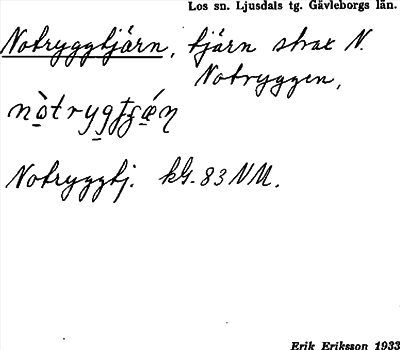 Los sn. Ljusdals tg. Gävleborgs län.
Notryggtjärn, tjärn strax N.
Notryggen,
Notryggtj. kbl. 83 NM.
Erik Eriksson 1933